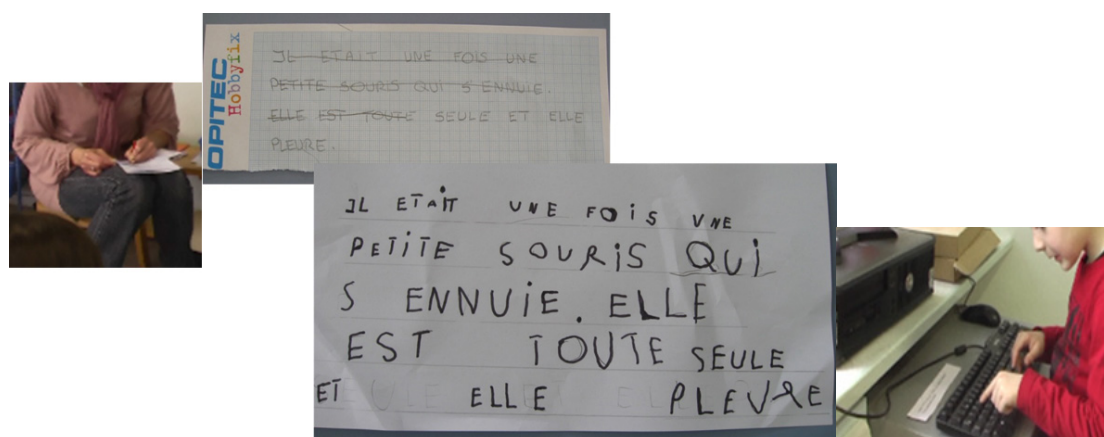 OPITEC
Hobbyfix
IL ETAIT UNE FOIS UNE
PETITE SOURIS QUI S ENNUIE.
ELLE EST TOUTE SEULE ET ELLE
PLEURE.
IL ETAIT UNE FOIS UNE
PETITE SOURIS QUI
S ENNUIE. ELLE
EST TOUTE SEULE
ET ELLE PLEURE